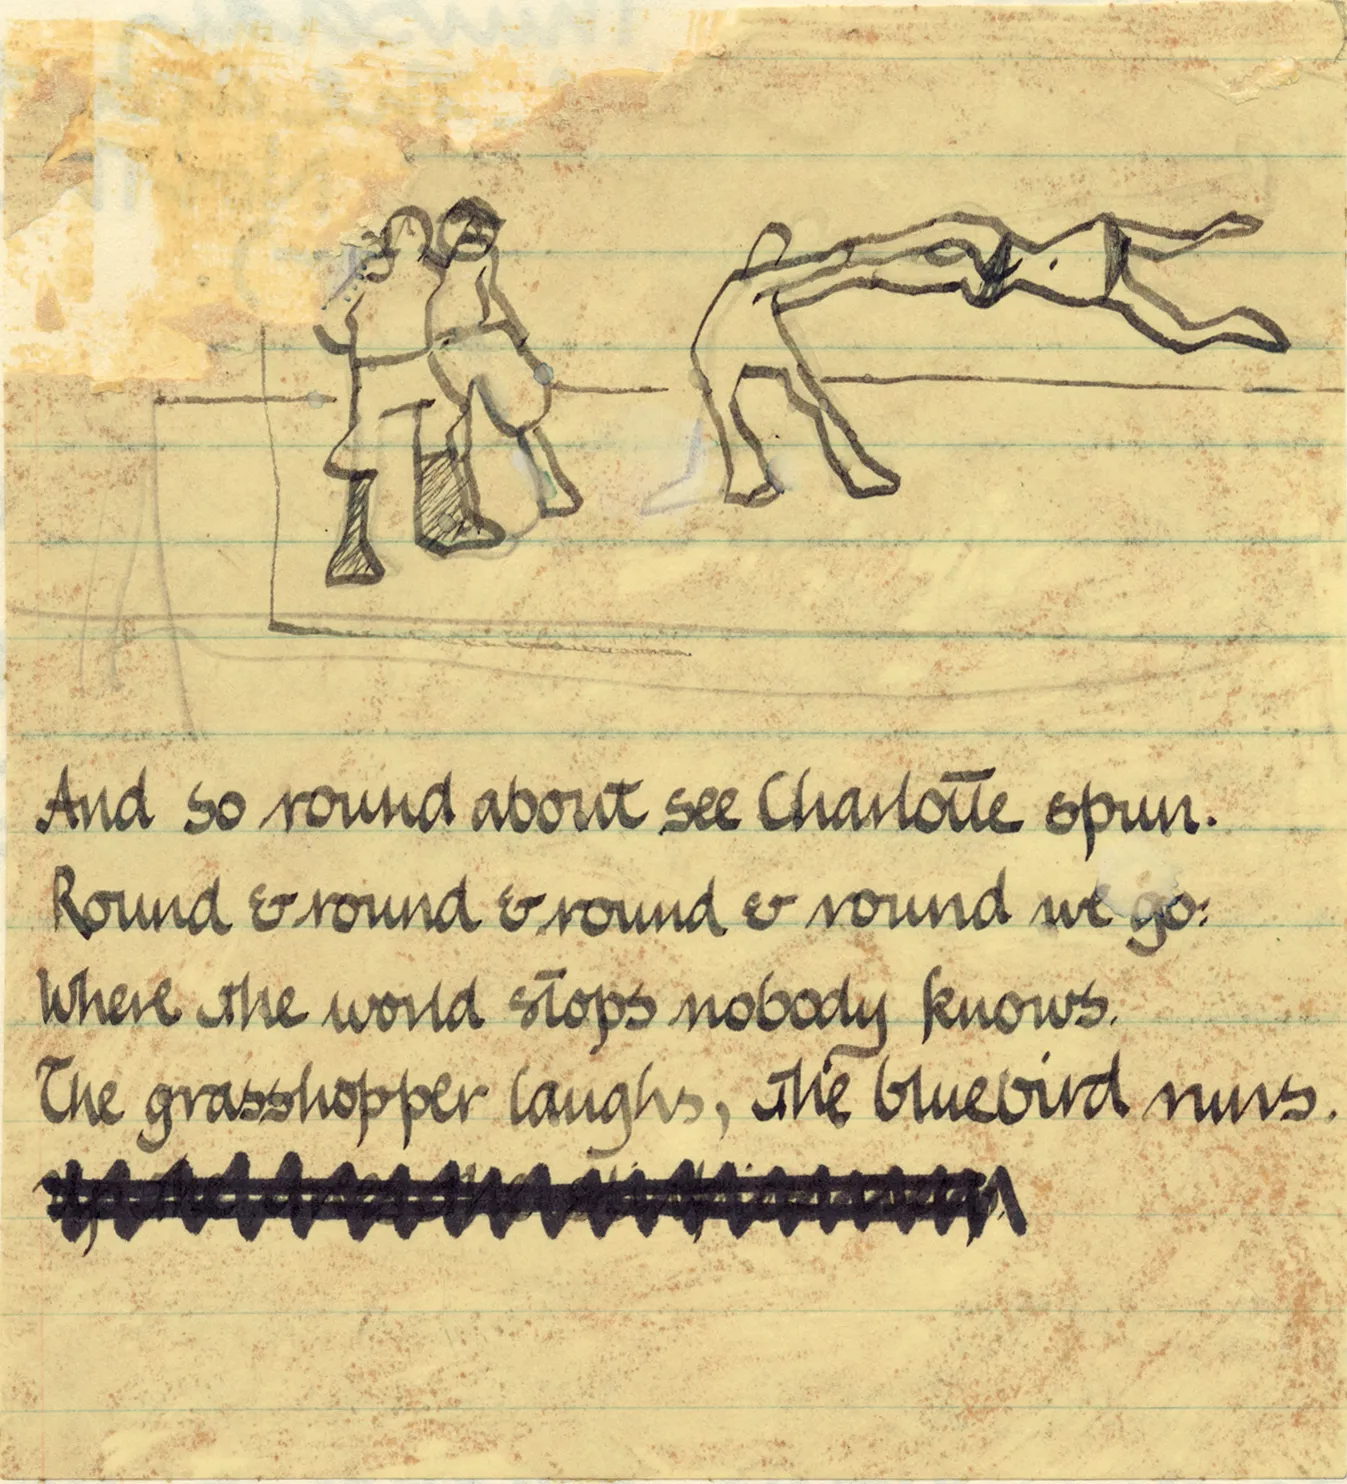 And so round about see Charlotte spun.
Round & round & round & round we go:
Where the world stops nobody knows.
The grasshopper laughs, the bluebird runs.